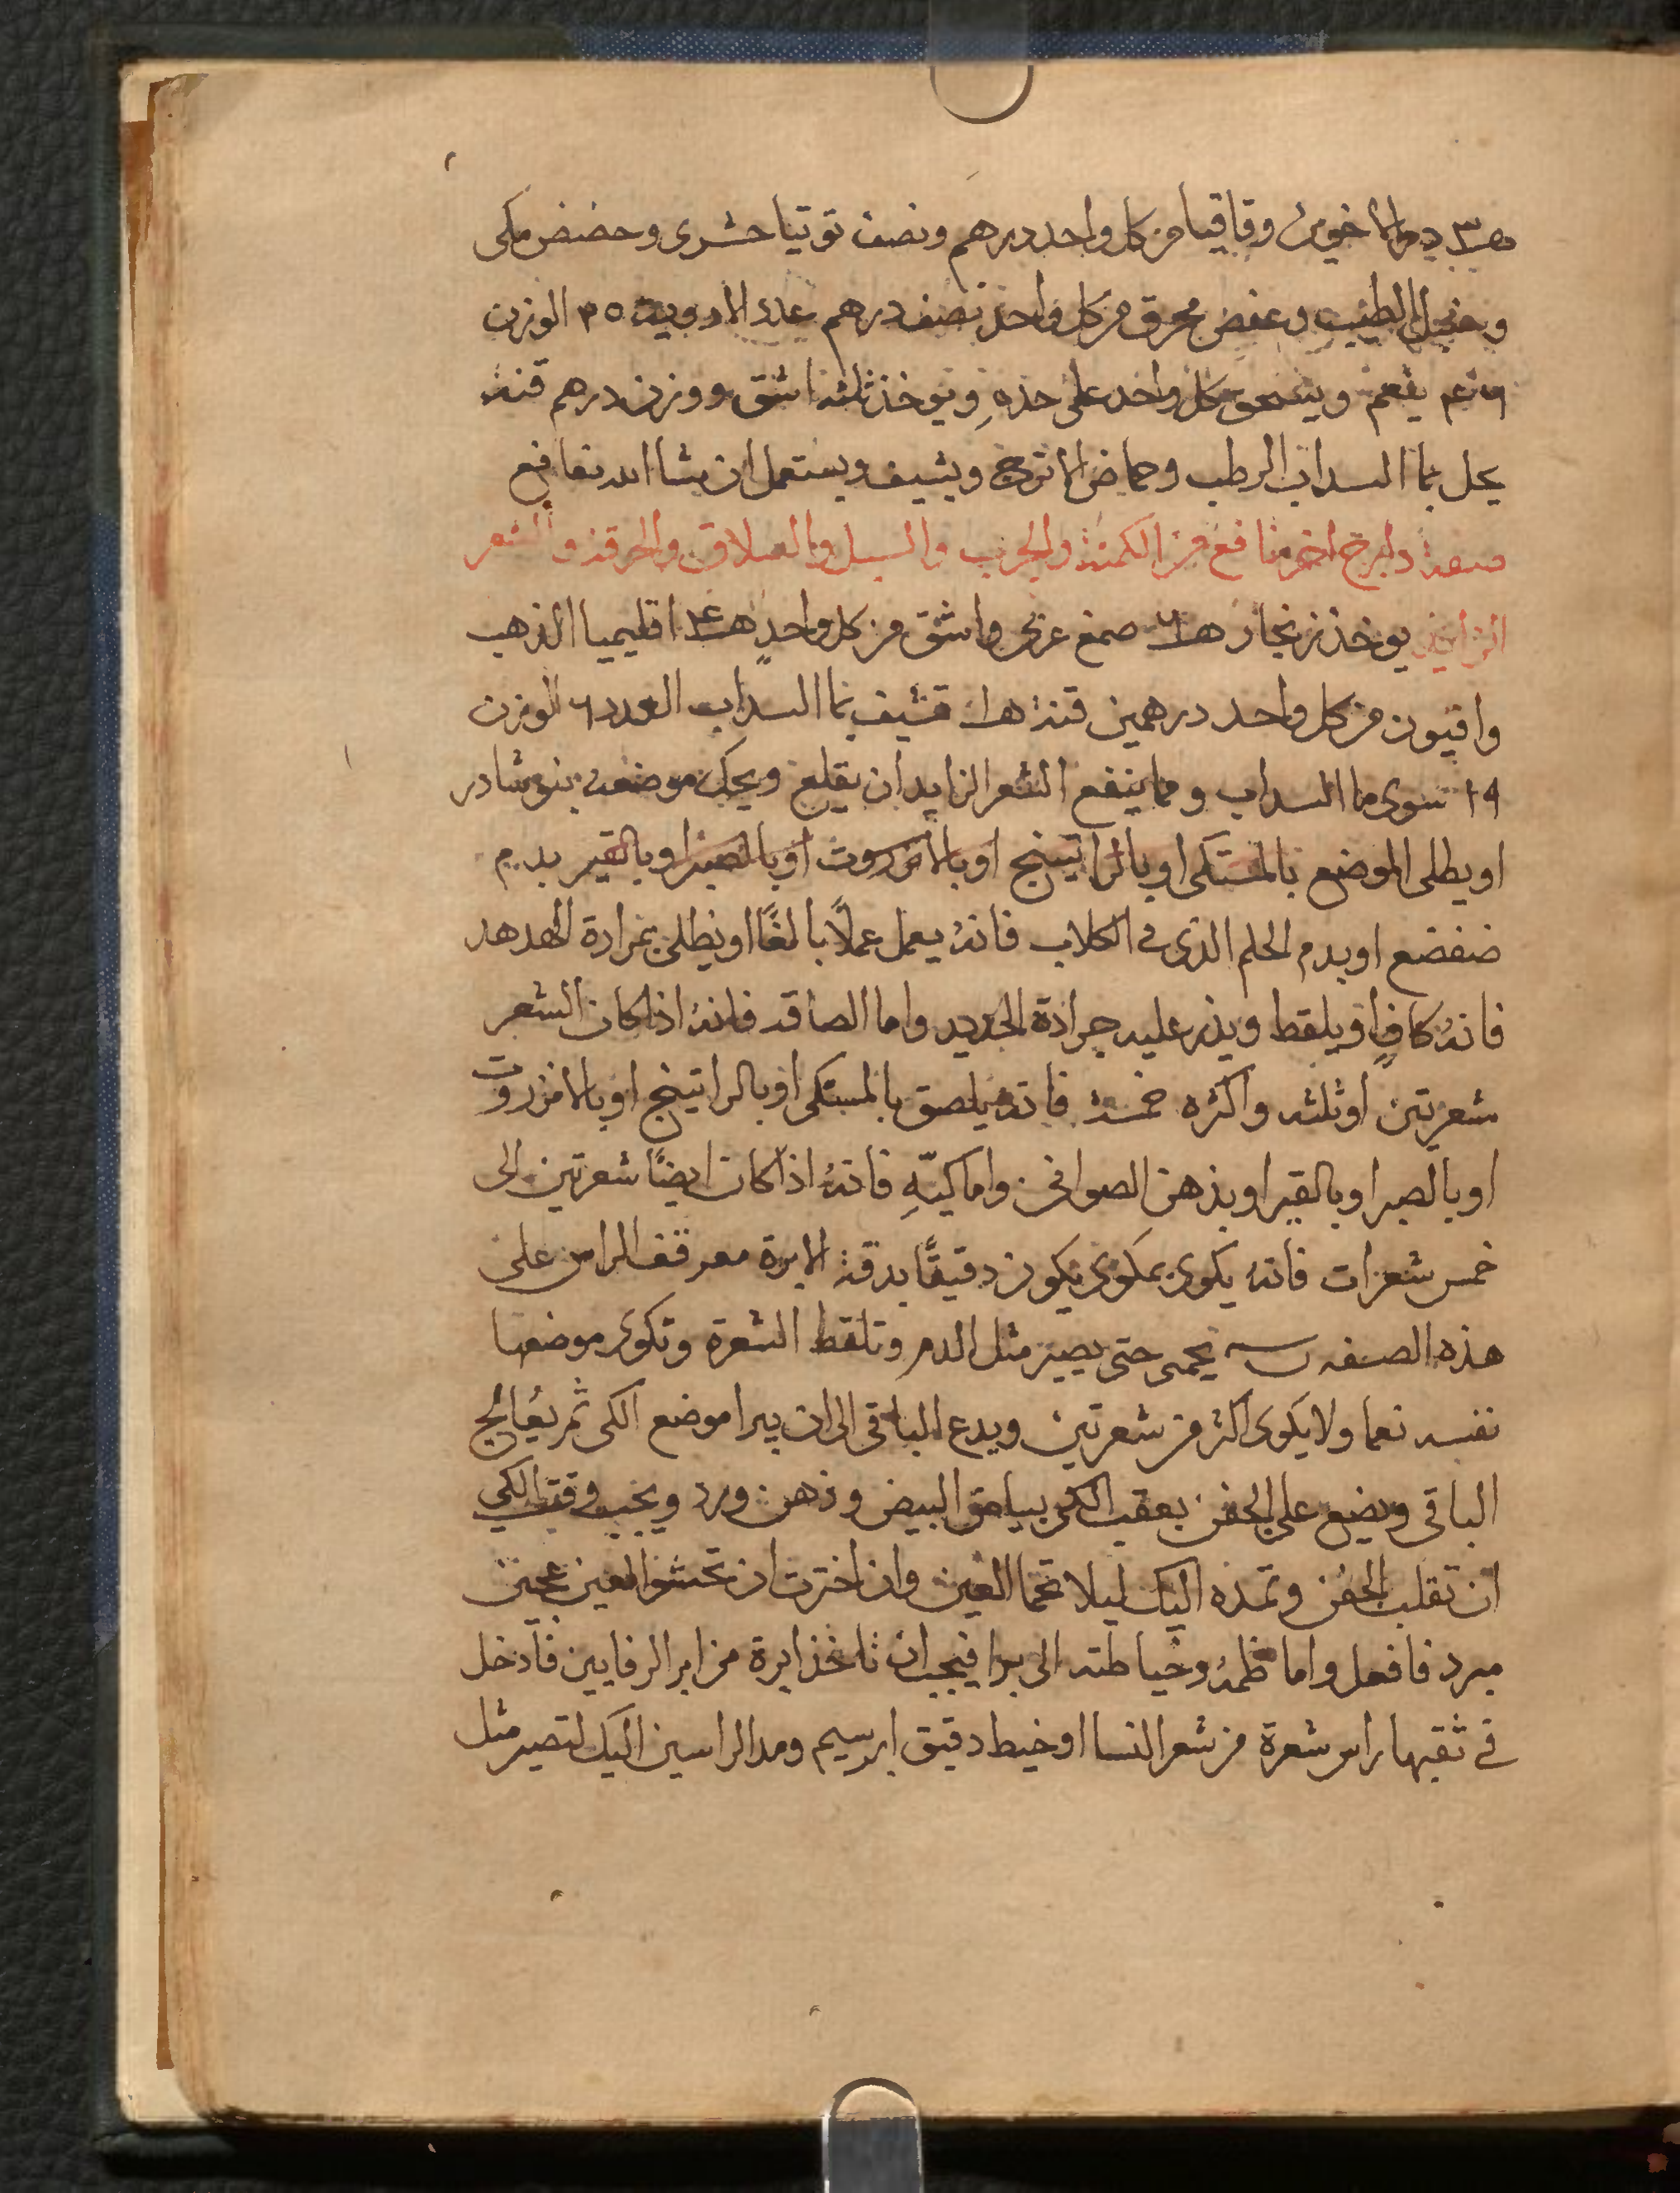 دم الاخوين وقاقيا من كل واحد درهم ونصف توتيا حشرى وحضض مكى
الطيب وعفص محرق من كل واحد نصف درهم عدد الادوية الوزن
ينعم ويسحق كل واحد على حده ويوخذ ثلثه اشق ووزن درهم قنه
يحل بما السداب الرطب وحماض الاترج ويشيف ويستعمل ان شا الله نافع
صفة دابرج اخر نافع من الكمنة والجرب والسبل والسلاق والحرقة والشعر
الزايد يوخذ زنجار صمغ عربى واشق من كل واحد اقليميا الذهب
وافيون من كل واحد درهمين قنه تشيف بما السداب العدد ٦ الوزن
١٩ سوى ما السداب ومما ينفع الشعر الزايد ان يقلع ويحك موضعه بنوشادر
او يطلى الموضع بالمستكى او بالراتينج او بالانزروت او بالصبر او بالقير بدم
ضفضع او بدم الحلم الذى فى الكلاب فانه يعمل عملًا بالغًا او يطلى بمرارة الهدهد
فانه كافٍ او يلقط ويذر عليه جرادة الحديد واما الصاقه فانه اذا كان الشعر
شعرتين او ثلثه واكثره خمسة فانه يلصق بالمستكى او بالراتينج او بالانزروت
او بالصبر او بالقير او بدهن الصوافى واما كيّهِ فانهُ اذا كان ايضًا شعرتين الى
خمس شعرات فانه يكوى بمكوى يكون دقيقًا بدقة الابرة معوقف الراس على
هذه الصفه يحمى حتى يصير مثل الدم وتلقط الشعرة وتكوى موضعها
نفسه نعما ولا يكوى اكثر من شعرتين ويدع الباقى الى ان يبرا موضع الكى ثم يعُالج
الباقى ويضع على الجفن بعقب الكى بياض البيض ودهن ورد ويجب وقت الكي
ان تقلب الجفن وتمده اليك ليلا تحما العين وان اخترت ان تحشوا العين عجين
مبرد فافعل واما نظمهُ وخياطته الى برا فيجب ان تاخذ ابرة من ابر الرفايين فادخل
فى ثقبها راس شعرة من شعر النسا او خيط دقيق ابرسيم ومد الراسين اليك لتصير مثل